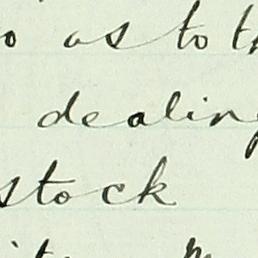 as to
dealing
stock